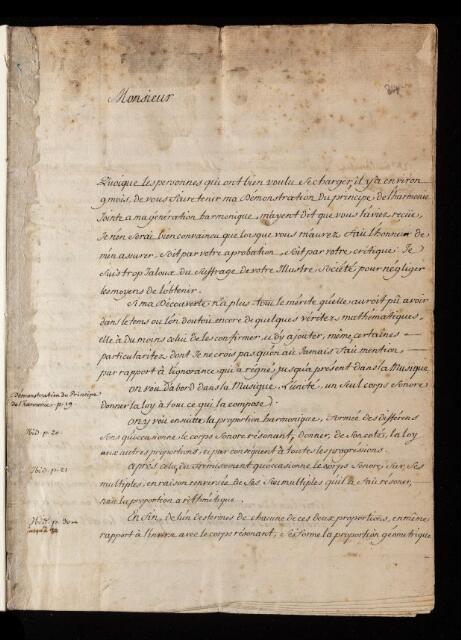 Monsieur
Quoique les personnes qui ont bien voulu se charger, il y a environ
9 mois, de vous faire tenir ma Démonstration du principe de l'harmonie
jointe a ma génération harmonique, m'ayent dit que vous l'aviez recüe,
Je n'en serai bien convaincu que lorsque vous m'aurez fait l'honneur de
m'en assurer, soit par votre aprobation, soit par votre critique. Je
suis trop jaloux du suffrage de votre Illustre Société pour négliger
les moyens de l'obtenir.
Si ma Découverte n'a plus tout le mérite qu'elle auroit pû avoir
dans le tems ou l'on doutoit encore de quelques véritez mathématiques,
elle a du moins celui de les confirmer, et d'y ajouter, même certaines
particularitez dont Je ne crois pas qu'on ait Jamais fait mention,
par rapport à l'ignorance qui a régné, jusqu'à présent dans la Musique
Démonstration du Principe
de l'harmonie p. 19
on voit d'abord dans la Musique L'unité, un seul corps Sonore
donner la loy à tout ce qui la compose
Ibid. p. 20.
on y voit ensuite la proportion harmonique, formée des différens
sons qu'occasionne le corps Sonore résonant, donner, de son coté, la loy
aux autres proportions, et par conséquent à toutes les progressions.
Ibid. p. 21
après cela, du frémissement qu'occasionne le corps Sonore, sur ses
multiples, en raison renversée de ses Sou multiples qu'il a fait résoner,
nait la proportion arithmétique.
Ibid. p. 30
Enfin, de l'un des termes de chacune de ces deux proportions, en même
rapport à l'inverse avec le corps résonant, se forme la proportion géometrique